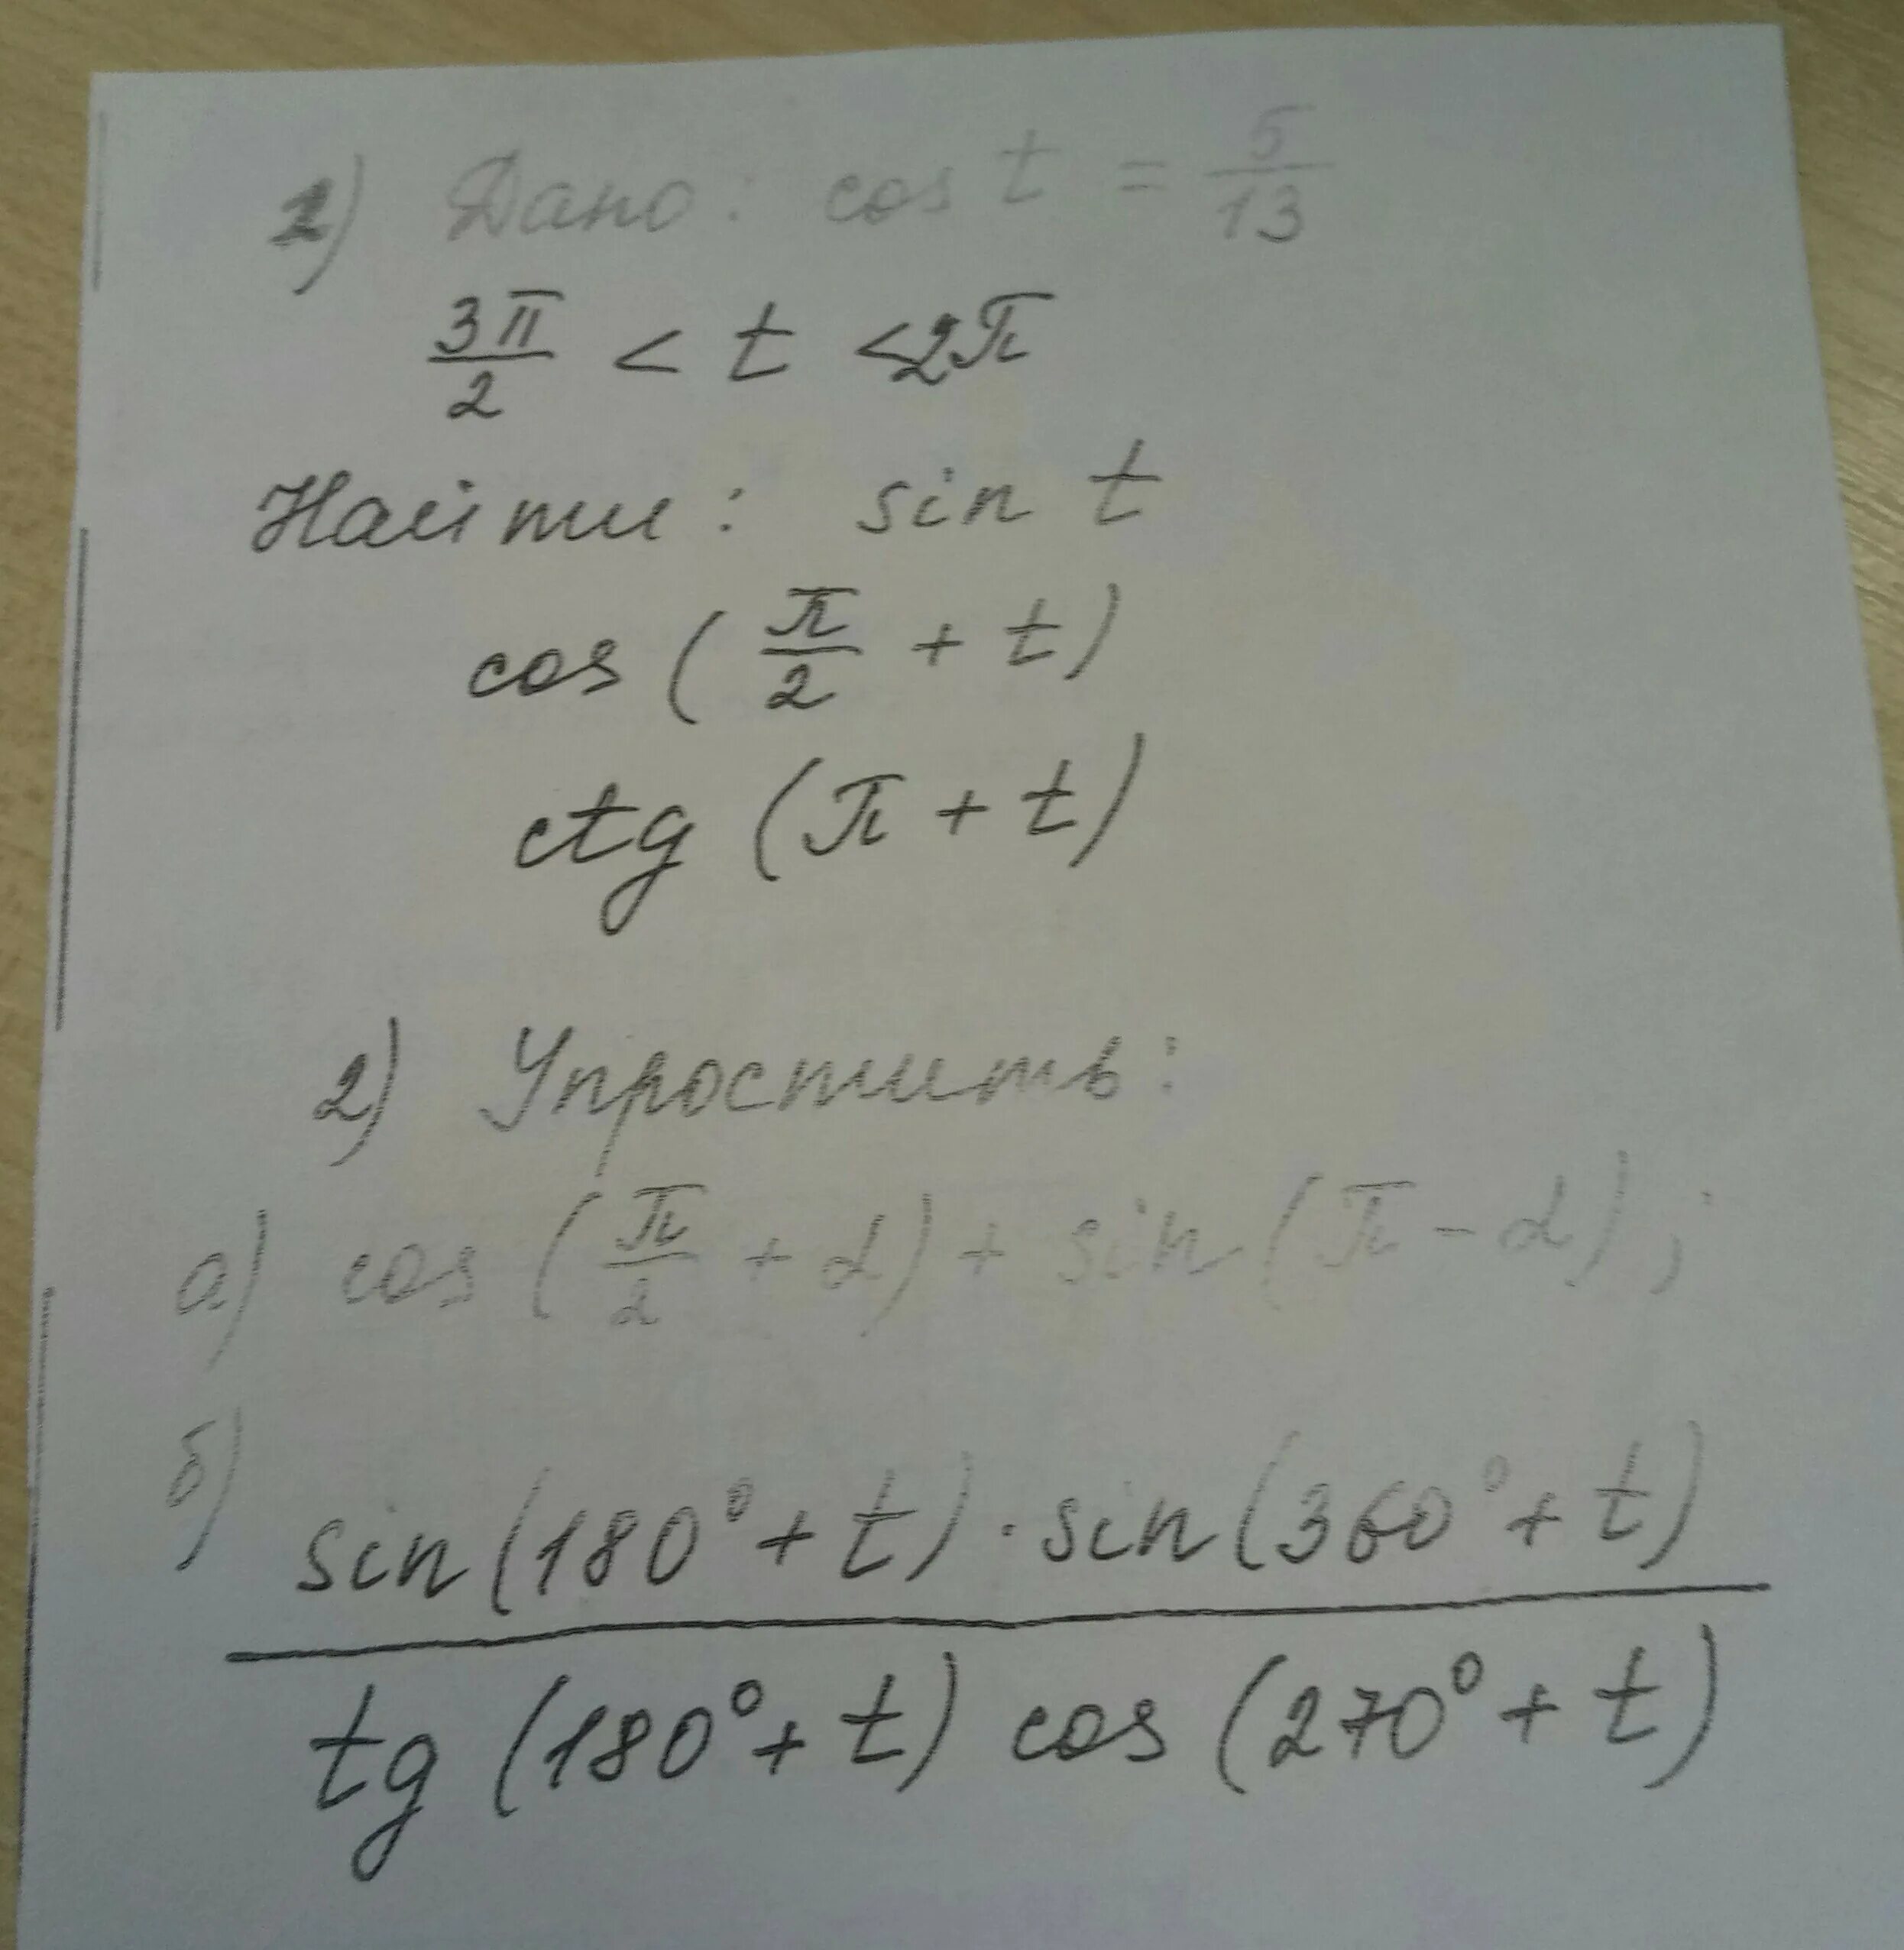 1) Дано: cos t = 5/13
3π/2 < t < 2π
Найти: sin t
cos (π/2 + t)
ctg (π + t)
2) Упростить:
а) cos (π/2 + α) + sin (π - α);
б) sin(180° + t) · sin(360° + t)
tg (180° + t) cos (270° + t)